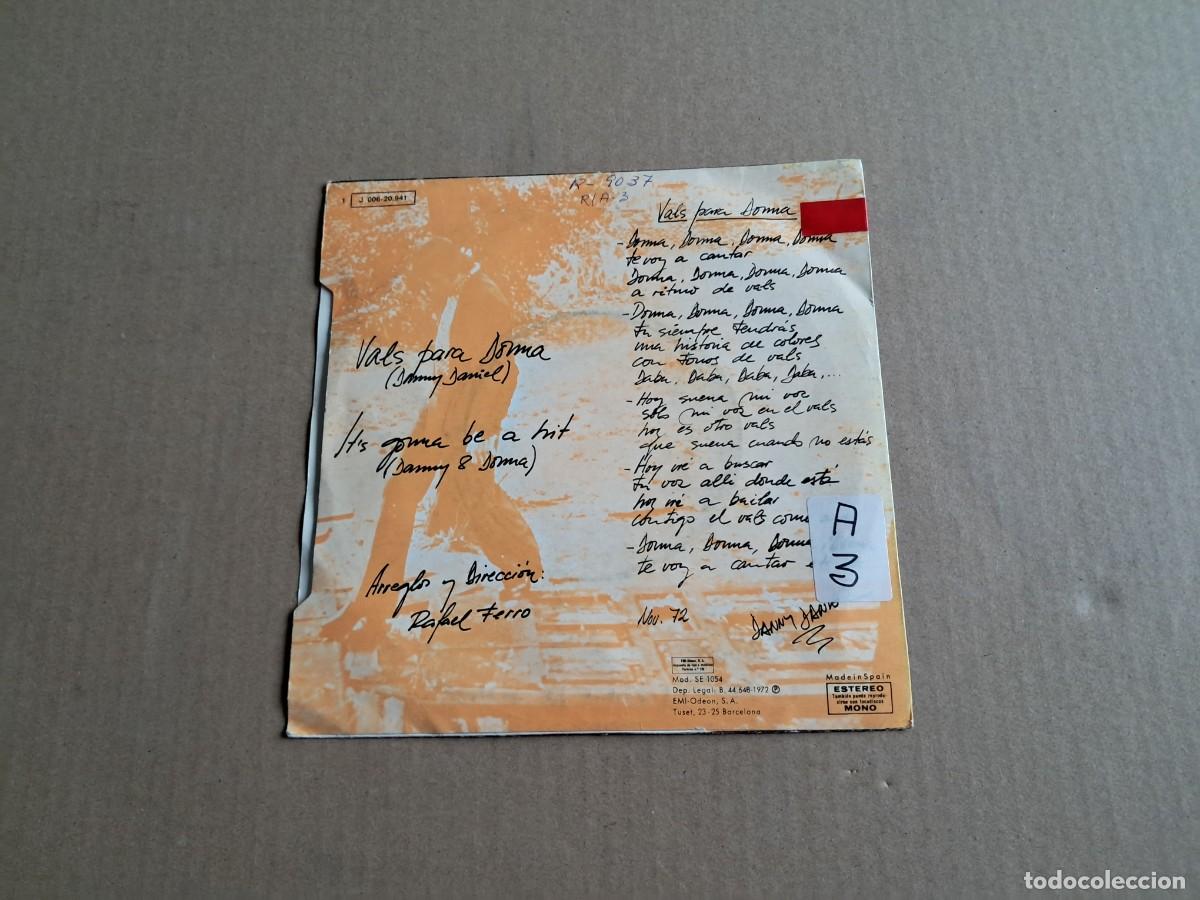 1 J 006-20.941
R-9037
R/A-3
Vals para Donna
(Danny Daniel)
It's gonna be a hit
(Danny & Donna)
Arreglos y Dirección:
Rafael Ferro
Vals para Donna
- Donna, Donna, Donna, Donna
te voy a cantar
Donna, Donna, Donna, Donna
a ritmo de vals
- Donna, Donna, Donna, Donna
tu siempre tendrás
una historia de colores
con tonos de vals
Daba, Daba, Daba, Daba,...
- Hoy suena mi voz
sólo mi voz en el vals
hoy es otro vals
que suena cuando no estás
- Hoy iré a buscar
tu voz alli donde está
hoy iré a bailar
contigo el vals
- Donna, Donna, Donna
te voy a cantar
A
3
Nov. 72
DANNY
EMI-Odeon, S.A.
Mod. SE 1054
Dep. Legal: B. 44.648-1972 Ⓟ
EMI-Odeon, S.A.
Tuset, 23-25 Barcelona
Made in Spain
ESTEREO
También puede reprodu-
cirse con tocadiscos
MONO
todocoleccion